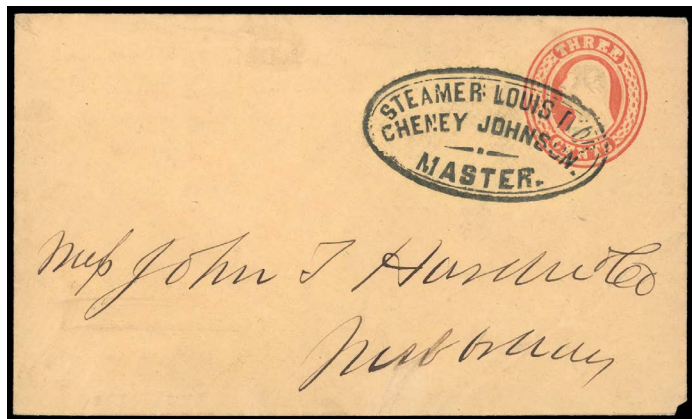 THREE
CENTS
STEAMER LOUIS D'OR
CHENEY JOHNSON.
MASTER.
Mess John T Hardie & Co
New Orleans